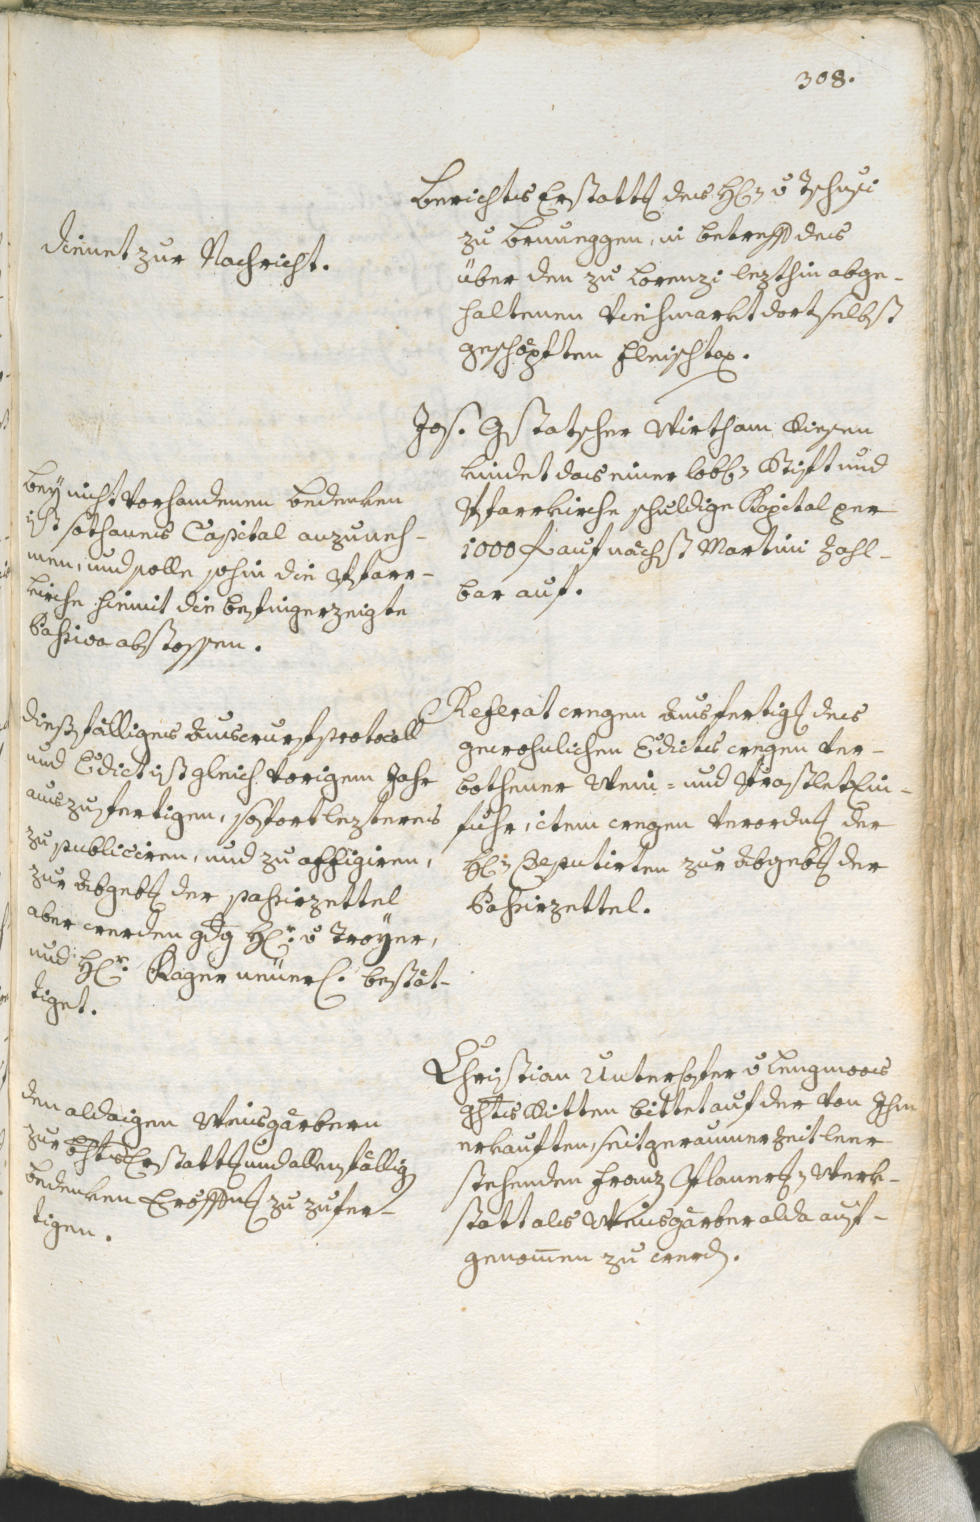 308.
Berichts Erstattg des H: v Tschusi
zu Brunegggen, in betreff des
über den zu Lorenzi lezthin abge-
haltenen Viehmarkt dortselbst
geschöpften Fleischtax.
dienet zur Nachricht.
Jos. Gstatscher Wirth am Riesen
kündet das einer löbl: Stift und
Pfarrkirche schuldige Kapital per
1000 f auf nächst Martini zahl-
bar auf.
Bey nicht vorhandenen bedenken
ist sothanes Capital anzuneh-
men, und solle sohin die Pfarr-
kirche hiemit die befingerzeigte
Passiva abstossen.
Referat wegen Ausfertigg des
gewohnlichen Edicts wegen ver-
bothener Wein- und Praslet Ein-
fuhr, item wegen Verordng der
H: Deputirten zur Abgebg der
Passirzettel.
dießfälliges Ausrufsprotocoll
und Edict ist gleich vorigem Jahr
auszufertigen, sofort lezteres
zu publiciren, und zu affigiren,
zur Abgebg der passirzettel
aber werden gdg H: v Troyer,
und H: Kager neüerl. bestät-
tiget.
Christian Unterhofer v Lengmoos
Ghts Ritten bittet auf der von Ihm
erkauften, seit geraumer Zeit leer
stehenden Franz Planer: Werk-
statt als Weisgärber alda auf-
genomen zu werd.
den aldaigen Weisgärbern
zur Erstattg und allenfällig
bedenken Eröffng zu zufer-
tigen.